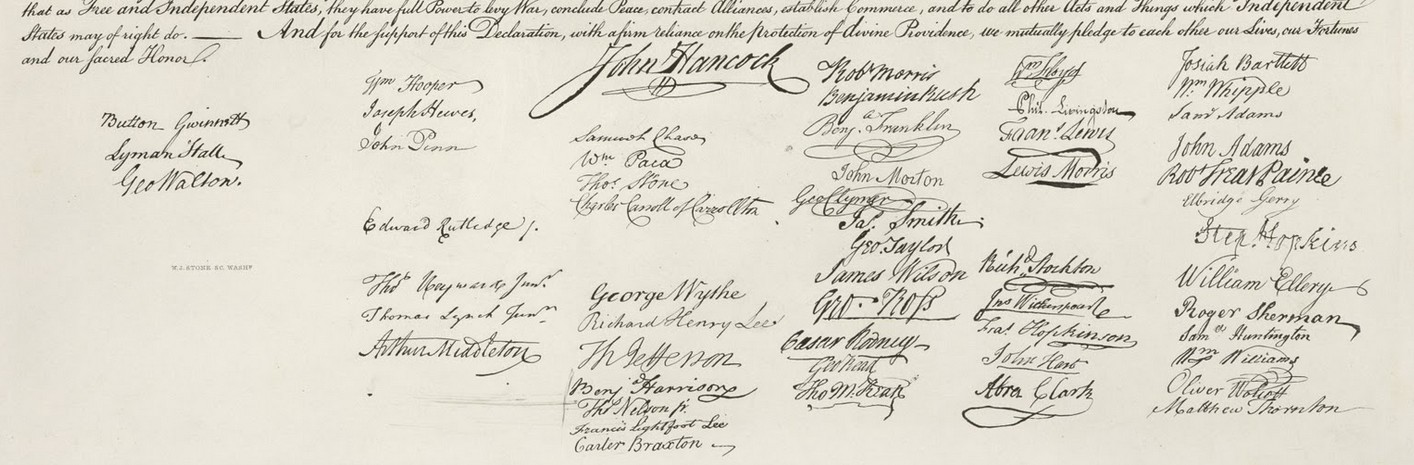 that as Free and Independent States, they have full Power to levy War, conclude Peace, contract Alliances, establish Commerce, and to do all other Acts and Things which Independent
States may of right do. — And for the support of this Declaration, with a firm reliance on the protection of divine Providence, we mutually pledge to each other our Lives, our Fortunes
and our sacred Honor.
Button Gwinnett
Lyman Hall
Geo Walton.
W.J. STONE SC. WASHN
Wm Hooper
Joseph Hewes,
John Penn
Edward Rutledge /.
Thos Heyward Junr.
Thomas Lynch Junr.
Arthur Middleton
John Hancock
Samuel Chase
Wm Paca
Thos. Stone
Charles Carroll of Carrollton
George Wythe
Richard Henry Lee
Th Jefferson
Benj Harrison
Thos Nelson jr.
Francis Lightfoot Lee
Carter Braxton
Robt Morris
Benjamin Rush
Benj. Franklin
John Morton
Geo Clymer
Jas. Smith
Geo. Taylor
James Wilson
Geo. Ross
Caesar Rodney
Geo Read
Tho M:Kean
Wm Floyd
Phil. Livingston
Frans. Lewis
Lewis Morris
Richd. Stockton
Jno Witherspoon
Fras. Hopkinson
John Hart
Abra Clark
Josiah Bartlett
Wm Whipple
Saml Adams
John Adams
Robt Treat Paine
Elbridge Gerry
Step. Hopkins
William Ellery
Roger Sherman
Samel Huntington
Wm Williams
Oliver Wolcott
Matthew Thornton